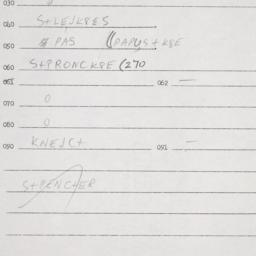 030
040 S+LEJK8ES
050 PAS (PAPUS+K8E
060 S+PRONCK8E (270
061 062 —
070 0
080 0
090 KNEJC+ 091 —
S+PENCHER